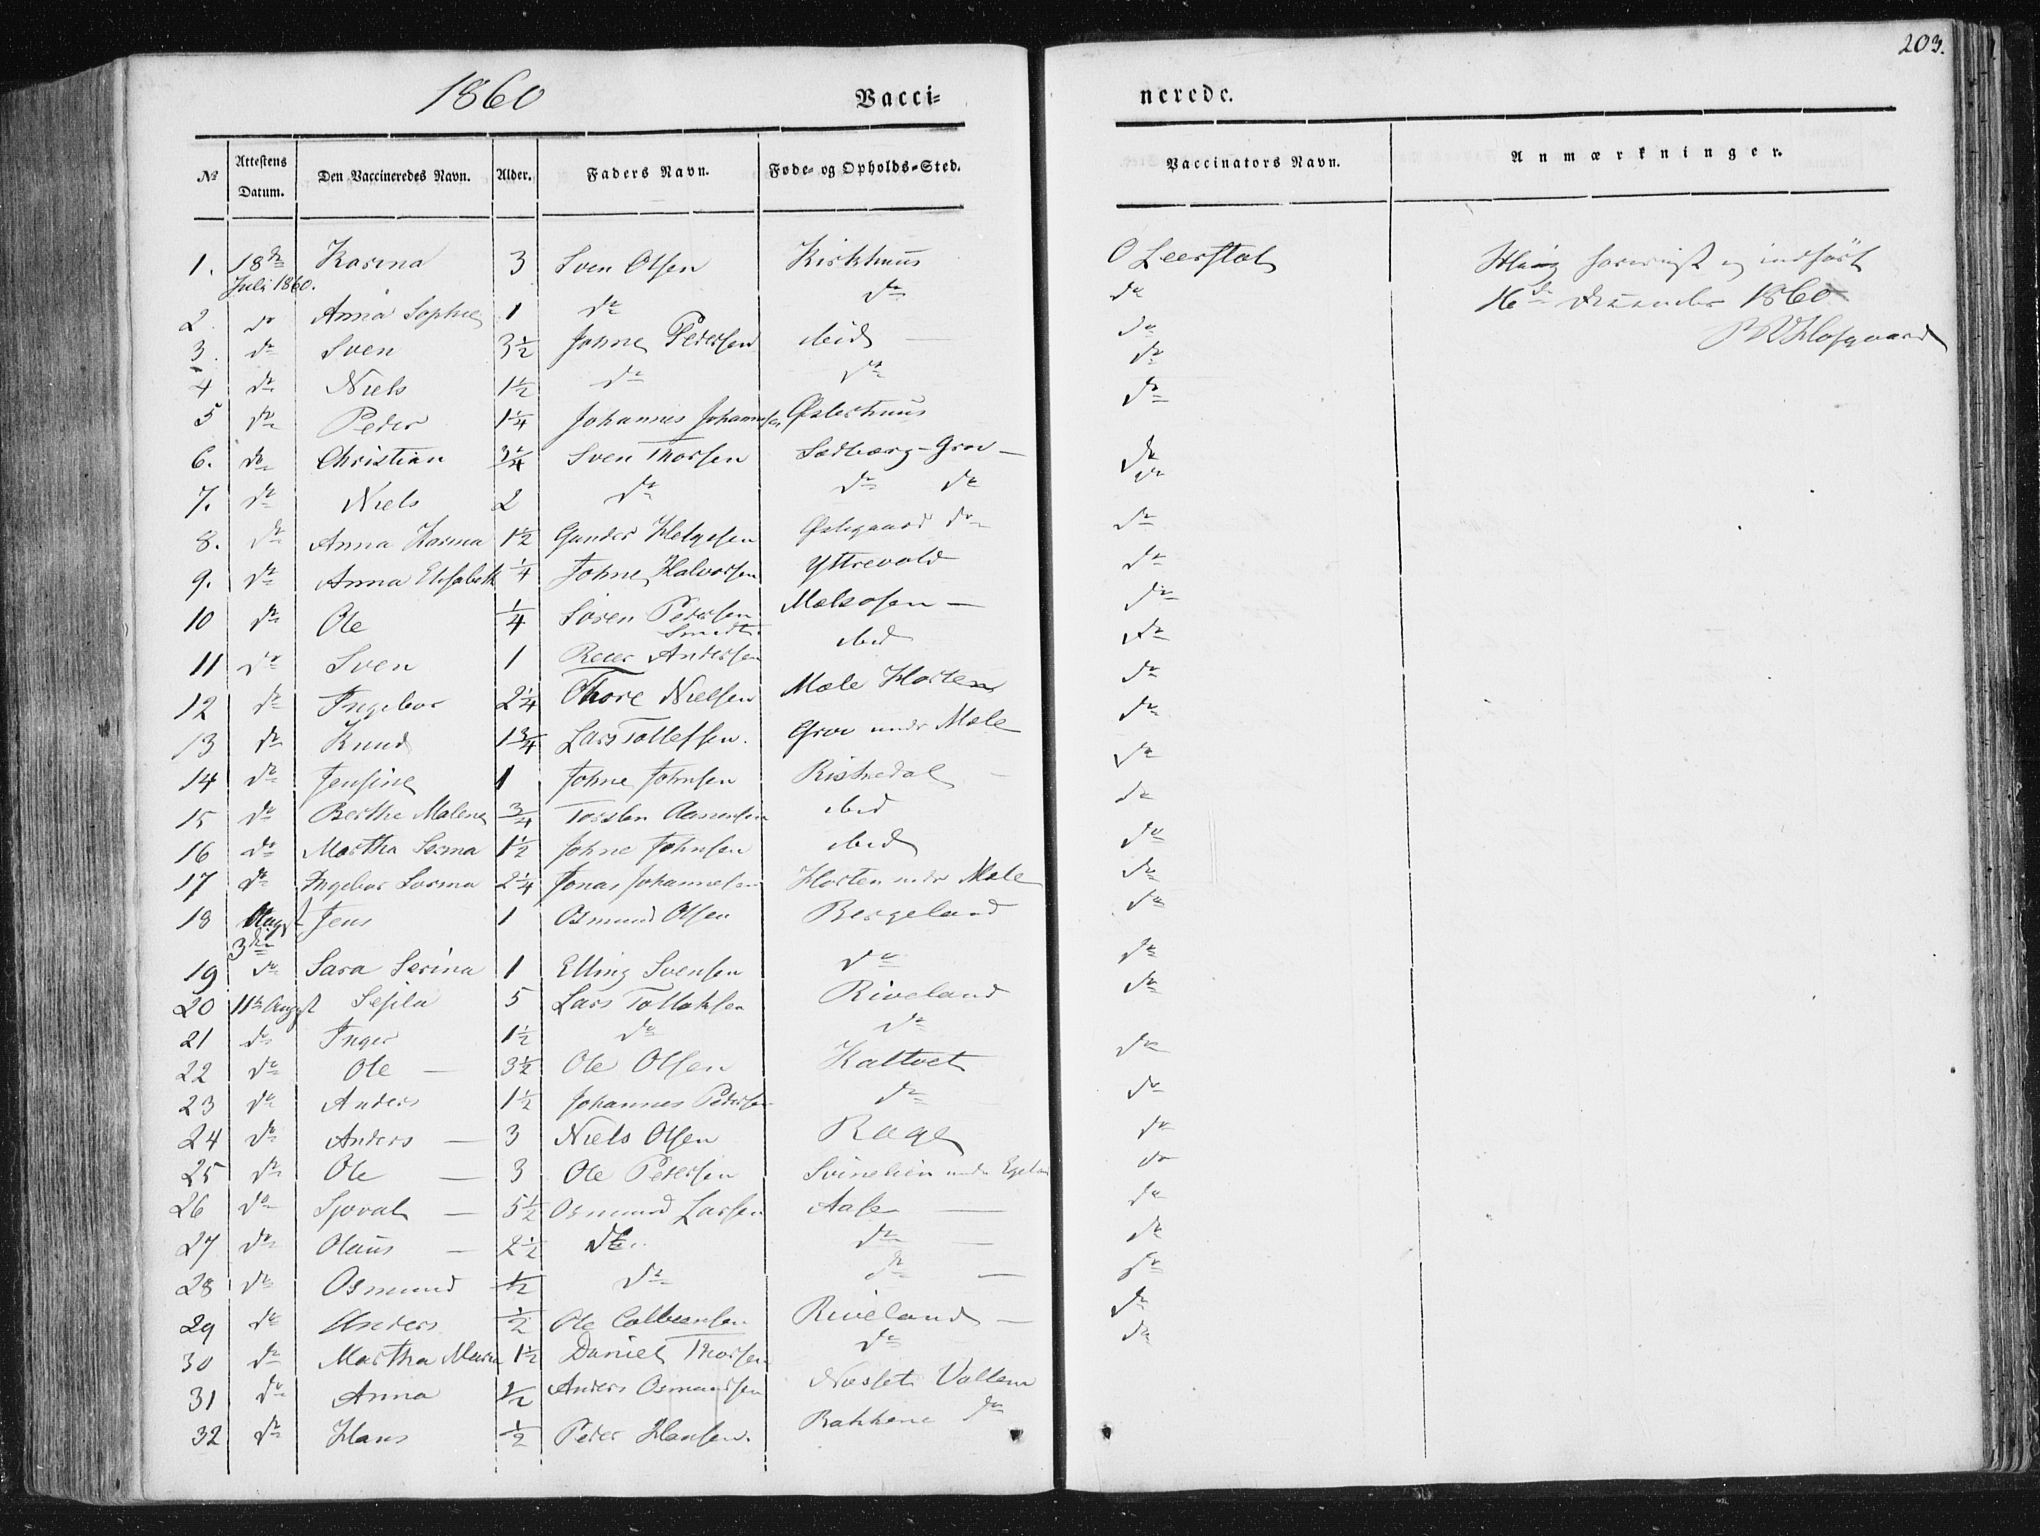 203.
1860 Vacci= nerede.
№ Attestens Datum. Den Vaccineredes Navn. Alder. Faders Navn. Føde= og Opholds=Sted. Vaccinators Navn. Anmærkninger.
1. 18de Juli 1860. Karina 3 Sven Olsen Kirkhuus O Leerstat
indført
16de December 1860
2. do Anna Sophie 1 do do do
3. do Sven 3½ Johne Pedersen ibid do
4 do Niels 1½ do do do
5 do Peder 1¼ Johannes Johannesen Østerhuus do
6. do Christian 3/4 Sven Thorsen Sædberg-Grov do
7. do Niels 2 do do do do
8. do Anna Karina 1½ Gunder Helgesen Østegaard do do
9. do Anna Elisabeth ¼ Johne Halvorsen Yttrevold do
10 do Ole ¼ Søren Pedersen Smedt Mælsosen do
11 do Sven 1 Reier Andersen ibid do
12 do Ingebor 2¼ Thore Nielsen Mæle Horten do
13 do Knud 1¾ Lars Tollefsen. Grov under Mæle do
14 do Jensine 1 Johne Johnsen Riskedal do
15 do Berthe Malene ¾ Torsten Aanensen ibid do
16 do Martha Serina 1½ Johne Johnsen ibid do
17 do Ingebor Sorina 2¼ Jonas Johannesen Horten under Mæle do
18 Augst 3die Jens 1 Osmund Olsen Bergeland do
19 do Sara Serina 1 Elling Svensen do do
20 11te Augst Sesila 5 Lars Tollaksen Riveland do
21 do Inger 1½ do do do
22 do Ole 3½ Ole Olsen Kaltvet do
23 do Anders 1½ Johannes Pedersen do do
24 do Anders 3 Niels Olsen Rage do
25 do Ole 3 Ole Pedersen Svinelien under Egeland do
26 do Sjovat 5½ Osmund Larsen Aase do
27 do Olaus 2½ do. do do
28 do Osmund ½ do do do
29 do Anders ½ Ole Colbensen Riveland do
30 do Martha Maria 1½ Daniel Thorsen do do
31 do Anna ½ Anders Osmundsen Næsset Valtem
32 do Hans ½ Peder Hansen. Bakkene do